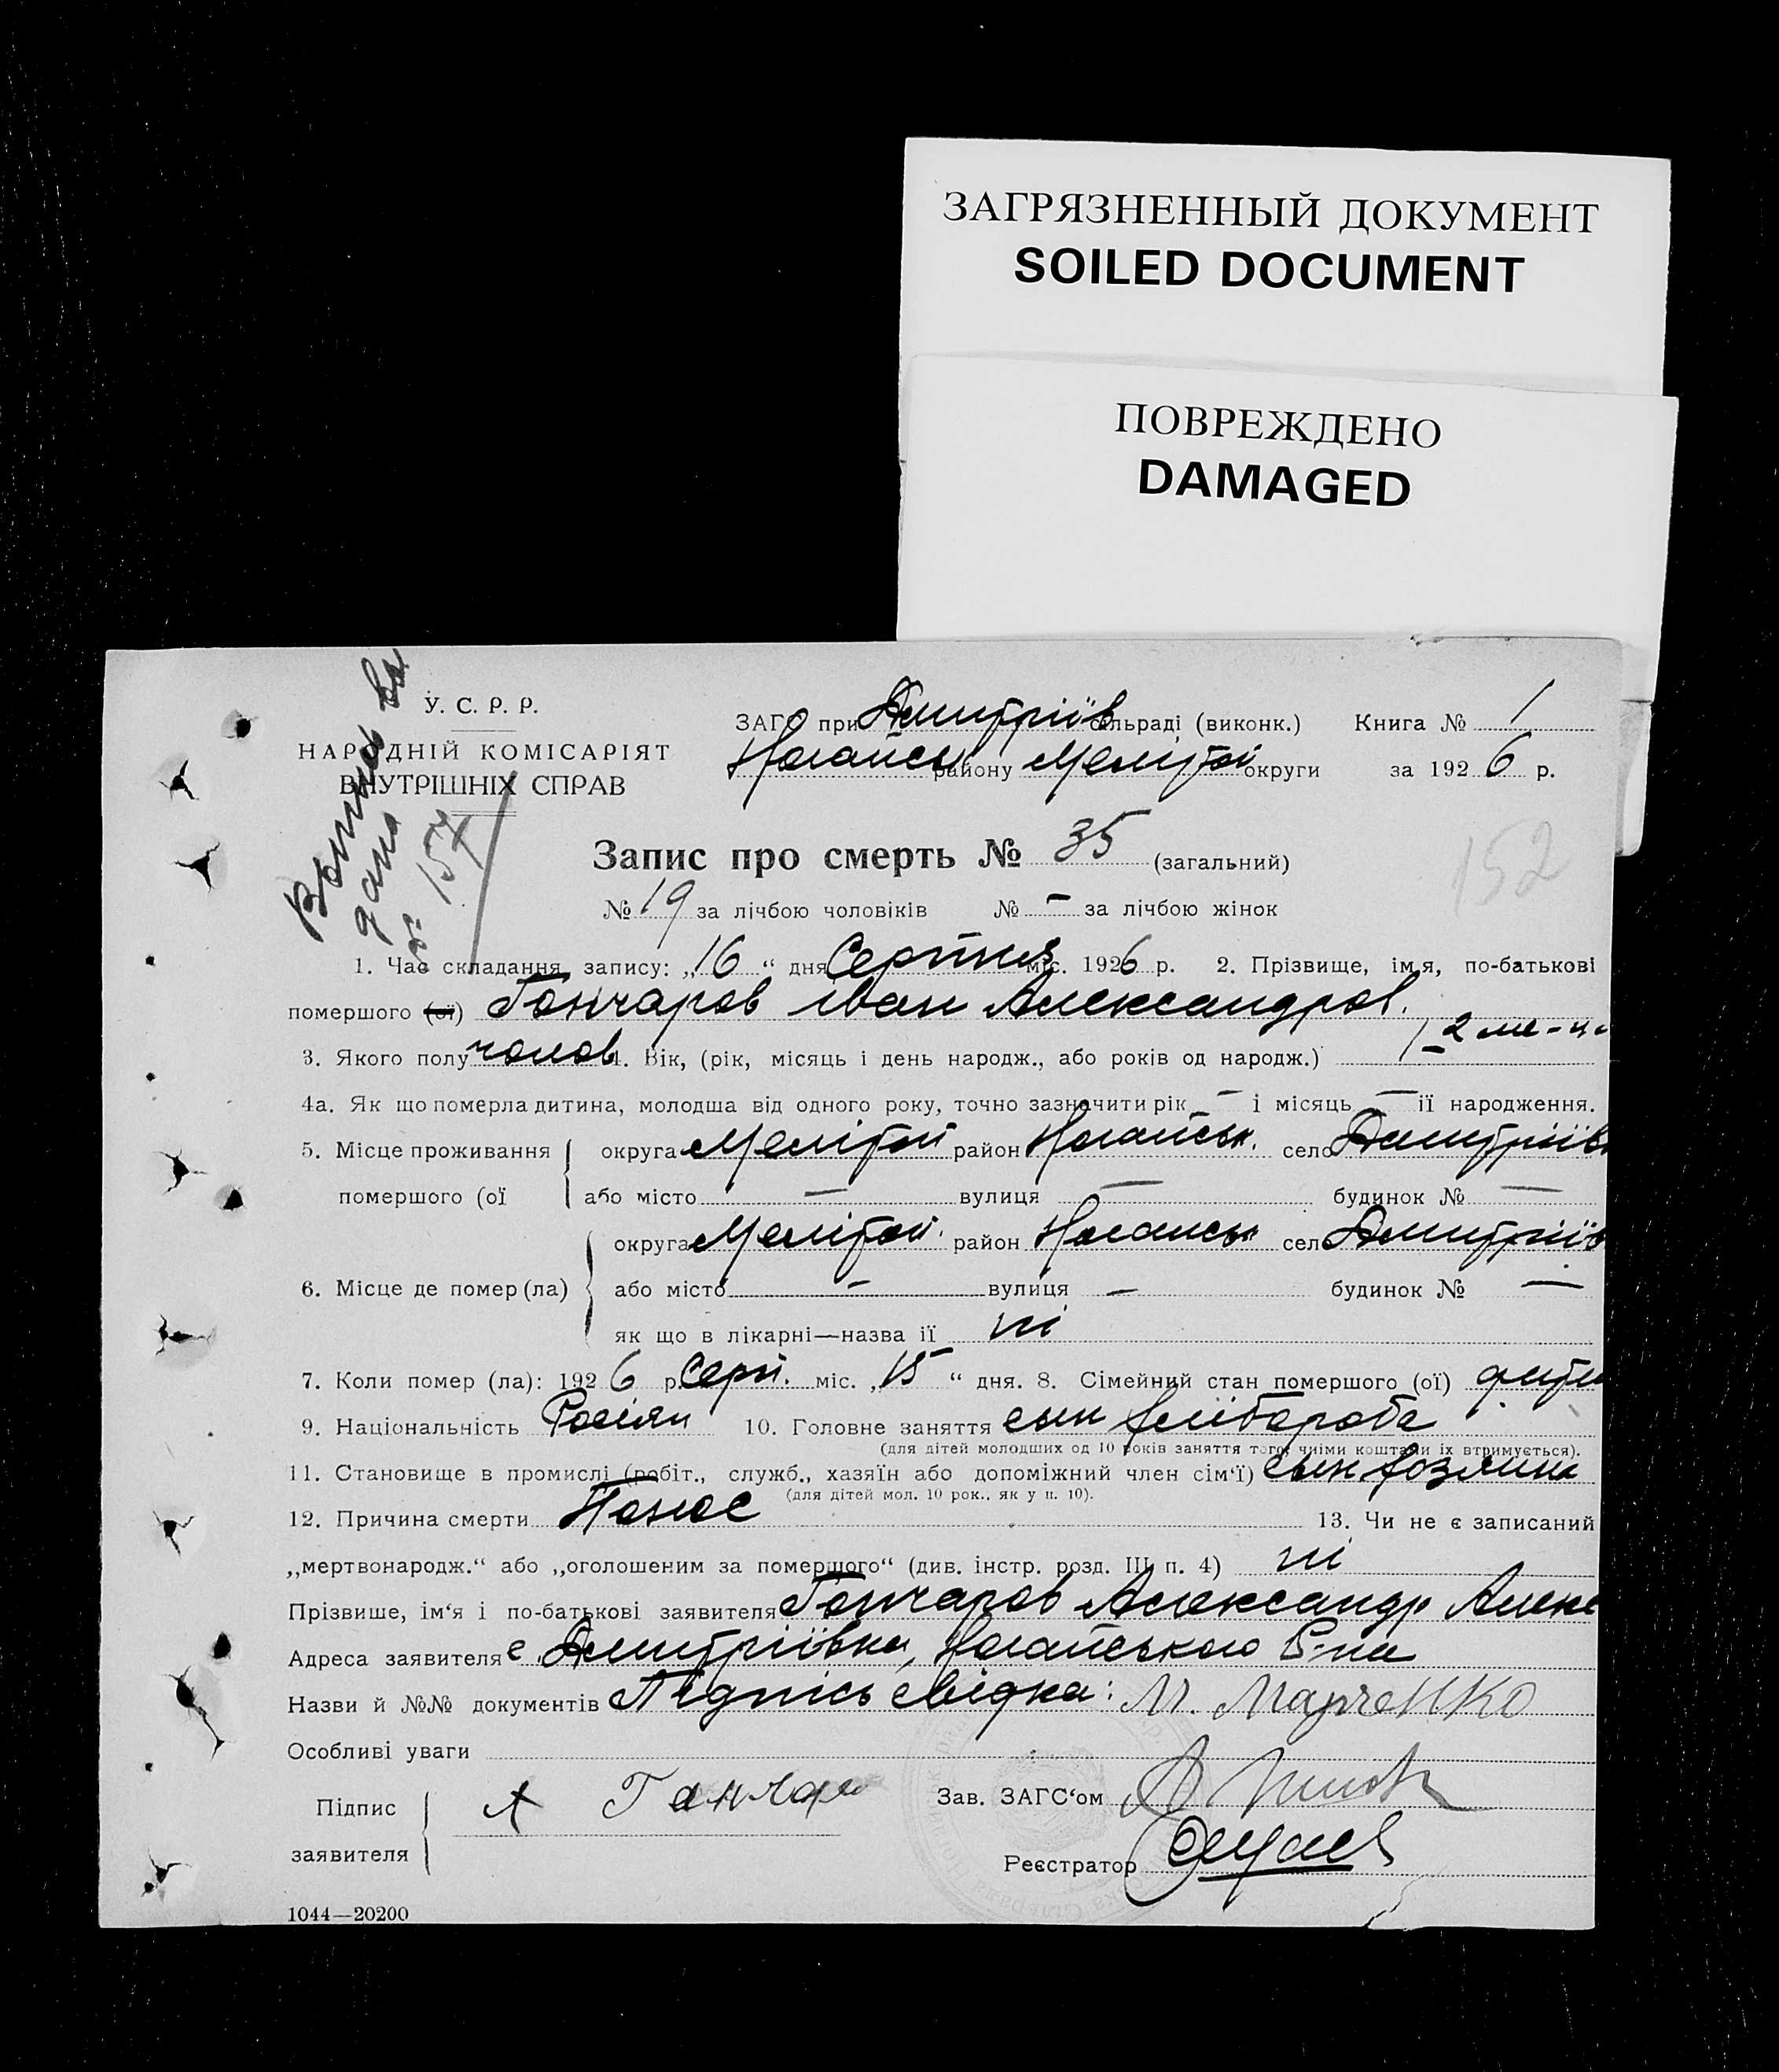 ЗАГРЯЗНЕННЫЙ ДОКУМЕНТ
SOILED DOCUMENT
ПОВРЕЖДЕНО
DAMAGED
У. С. Р. Р.
НАРОДНІЙ КОМІСАРІЯТ
ВНУТРІШНІХ СПРАВ
ЗАГС при Дмитріїв сільраді (виконк.) Книга № 1
Ногайськ району Меліт округи за 1926 р.
Запис про смерть № 35 (загальний)
152
№ 19 за лічбою чоловіків № – за лічбою жінок
1. Час складання запису: „16“ дня Серпня міс. 1926 р. 2. Прізвище, імя, по-батькові
помершого (ої) Гончаров Іван Александров.
3. Якого полу чолов 4. Вік, (рік, місяць і день народж., або років од народж.)
4а. Як що померла дитина, молодша від одного року, точно зазначити рік – і місяць – її народження.
5. Місце проживання округа Меліто район Ногайськ. село Дмитріїв
помершого (ої або місто – вулиця – будинок № –
округа Меліто район Ногайськ село Дмитріїв
6. Місце де помер (ла) або місто – вулиця – будинок № –
як що в лікарні—назва її ні
7. Коли помер (ла): 1926 р. Серп. міс. „15“ дня. 8. Сімейний стан помершого (ої) дити
9. Національність Росіян 10. Головне заняття сын хлібороба
(для дітей молодших од 10 років заняття того, чиїми коштами їх втримується).
11. Становище в промислі (робіт., служб., хазяїн або допоміжний член сім‘ї) сын хозяина
(для дітей мол. 10 рок., як у п. 10).
12. Причина смерти Понос 13. Чи не є записаний
„мертвонародж.“ або „оголошеним за помершого“ (див. інстр. розд. III п. 4) ні
Прізвише, ім‘я і по-батькові заявителя Гончаров Александр Алекс
Адреса заявителя с. Дмитріївка, Ногайського Р-на
Назви й №№ документів Підпісь свідка: М. Марченко
Особливі уваги
Підпис А Ганчар Зав. ЗАГС‘ом
заявителя Реєстратор
1044—20200